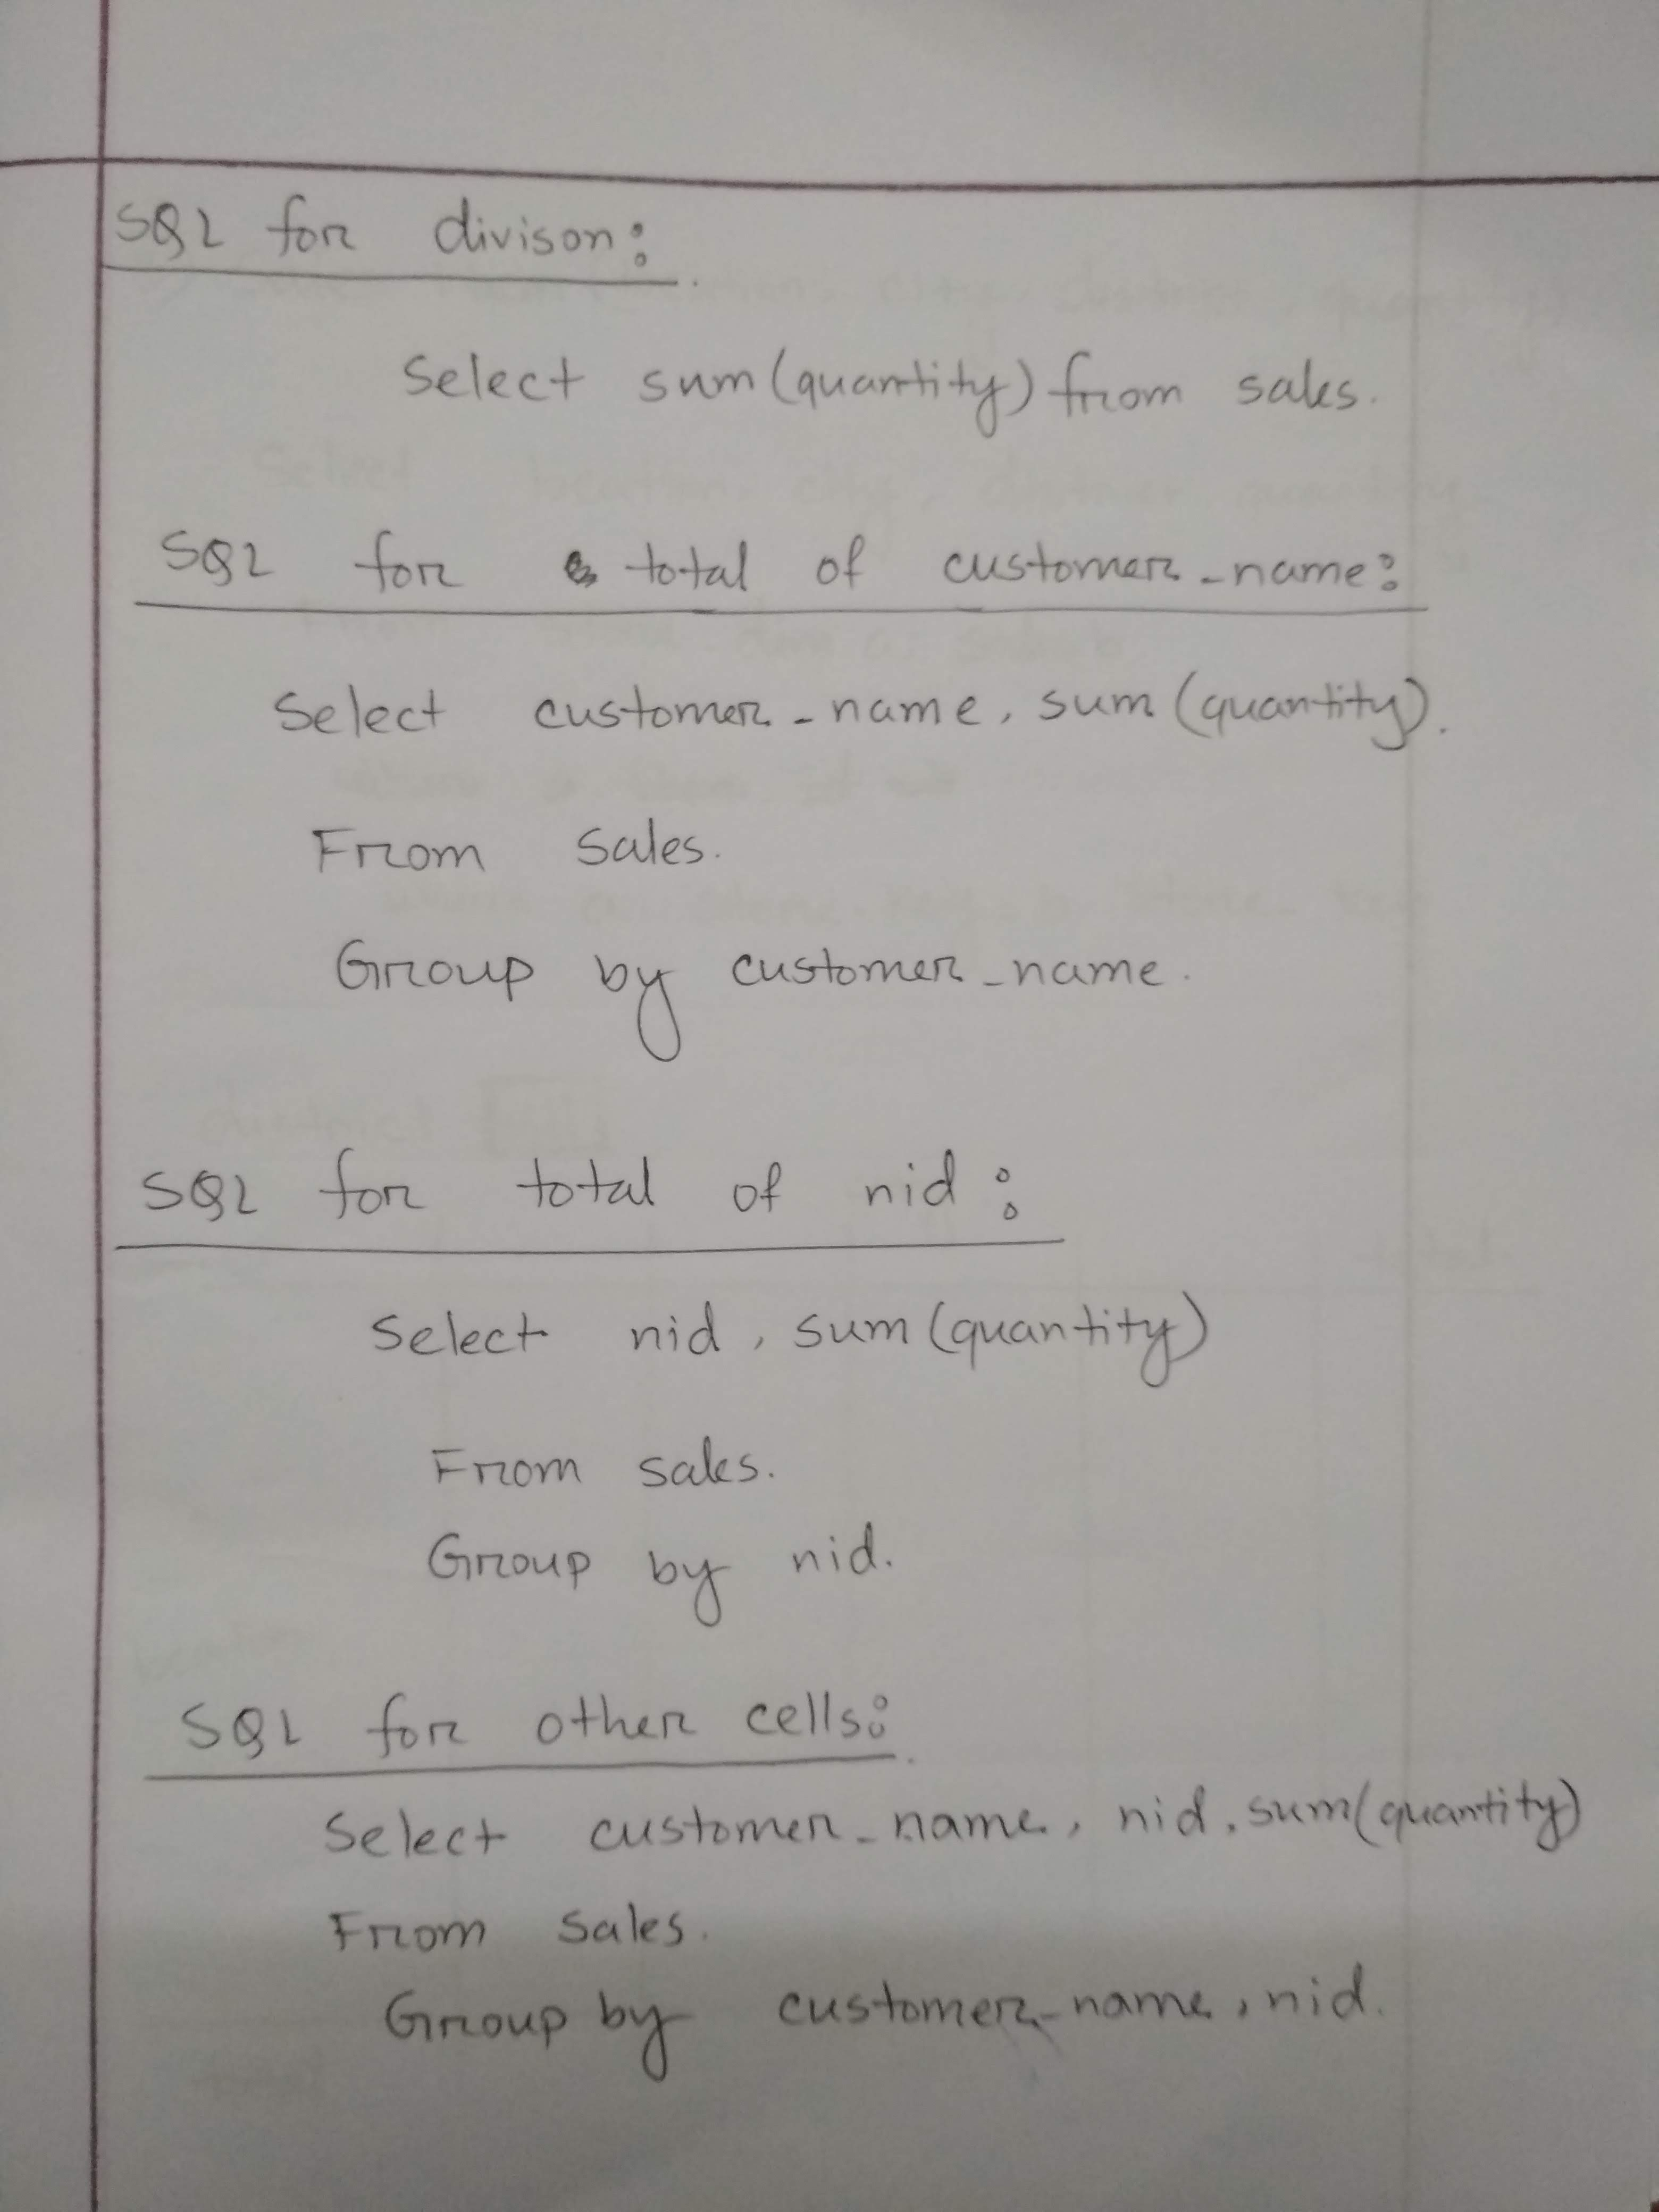 SQL for divison:
Select sum(quantity) from sales.
SQL for total of customer_name:
Select customer_name, sum(quantity).
From sales.
Group by customer_name.
SQL for total of nid:
Select nid, sum(quantity)
From sales.
Group by nid.
SQL for other cells:
Select customer_name, nid, sum(quantity)
From sales.
Group by customer_name, nid.